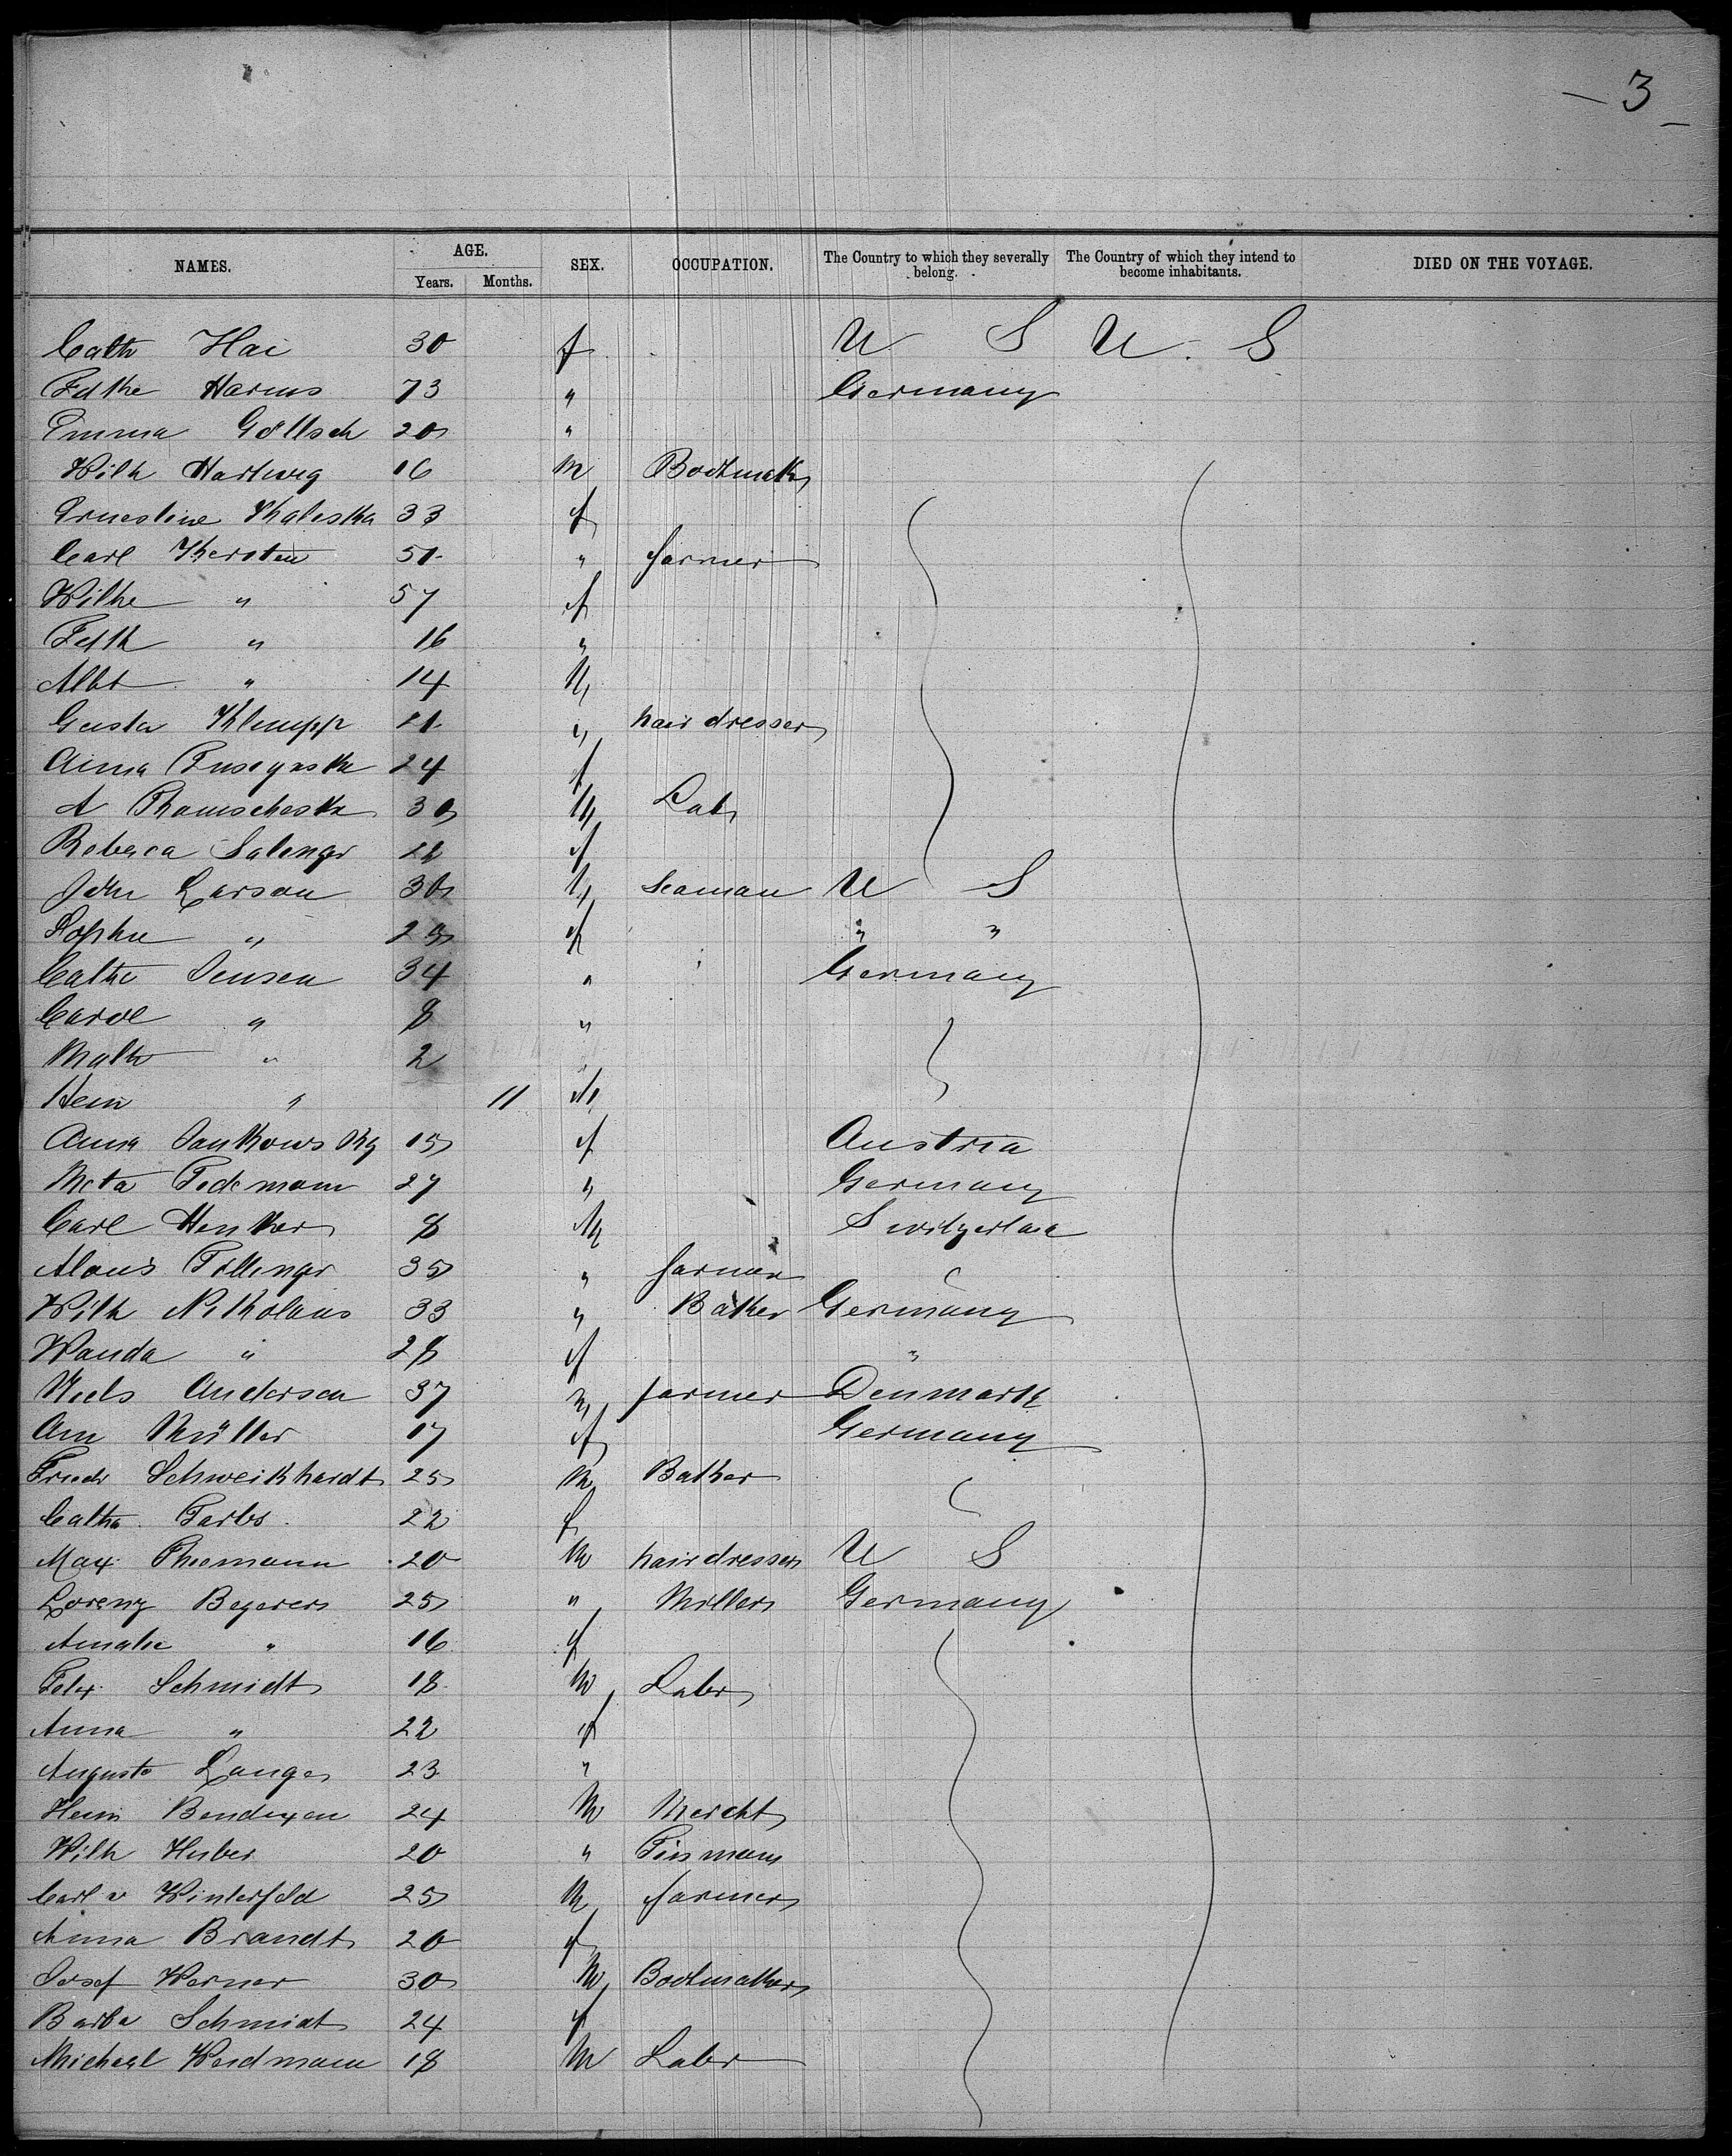 3
NAMES. AGE. SEX. OCCUPATION. The Country to which they severally belong. The Country of which they intend to become inhabitants. DIED ON THE VOYAGE.
Years. Months.
Cath Hai 30 f U S U. S
Fdke Harms 73 " Germany
Emma Göllsch 20 "
Wilh Hartwig 16 m Bootmak
Ernestine Kaleska 33 f
Carl Kersten 51 " farmer
Wilhe " 57 f
Fdk " 16 "
Albt " 14 M
Gusta Klumpp 21 " hair dresser
Anna 24 f
A 30 M Lab
Rebecca Salinger 22 f
John Larson 30 M Seaman U S
Sophie " 23 f " "
Cathe Jensen 34 " Germany
Carol " 8 "
Math " 2 "
Hein " 11 M
Anna Jankowsky 15 f Austria
Meta Tedemann 27 " Germany
Carl Henker 8 M Switzerlad
Alois Fillinger 35 " farmer
Wilh Nikolaus 33 " Baker Germany
Wanda " 28 f "
Niels Andersen 37 m farmer Denmark
Ann Müller 17 f Germany
Friedr Schweikhardt 25 m Baker
Catha Farbs 22 f
Max Thiemann 20 m hairdresser U S
Lorenz Beyerer 25 " Miller Germany
Amalie " 16 f
Felix Schmidt 18 m Labr
Anna " 22 f
Auguste Lange 23 "
Hein Bendixen 24 M Mercht
Wilh Huber 20 " Tinman
Carl v Winterfeld 25 M farmer
Anna Brandt 20 f
Josef Werner 30 M Bootmaker
Barba Schmidt 24 f
Michael Weidmann 18 M Labr